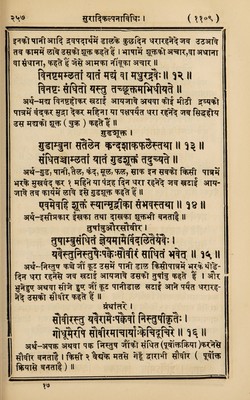 २५७ सुरादिकल्पनाविधिः। (११०९)
इनको पानी आदि द्रवपदार्थमें डालके कुछदिन धरारहनेदे जब उठआवे
तब काममें लावे उसको शुक्त कहते हैं । भाषामें शुक्तको अचार, वा अथाना
वा संधाना, कहते हैं जैसे आमका नींबूका अचार ॥
विनष्टमम्लतां यातं मद्यं वा मधुरद्रवैः ॥ १२ ॥
विनष्टः संधितो यस्तु तच्छूक्तमभिधीयते ॥
अर्थ-मद्य विनष्टहोकर खटाई आयजावे अथवा कोई मीठी द्रव्यको
पात्रमें बंदकर मुद्रा देकर महिना या पक्षपर्यंत धरा रहनेदे जब सिद्धहोय
उस मद्यको शुक्त ( चुक ) कहते हैं ॥
गुडशुक्त।
गुडाम्बुना सतेलेन कन्दशाकफलैस्तथा ॥ १३ ॥
संधितश्चाम्लतां यातं गुडशुक्तं तदुच्यते ॥
अर्थ-गुड, पानी, तैल, कंद, मूल, फल, साक इन सबको किसी पात्रमें
भरके मुखबंद कर १ महिना या पंद्रह दिन धरा रहनेदे जब खटाई आय-
जावे तब काममें लावे इसको गुडशुक्त कहते हैं ॥
एवमेवेहि शुक्तं स्यान्मृद्वीकां संभवस्तथा ॥ १४ ॥
अर्थ-इसीप्रकार ईखका तथा दाखका शूक्तभी बनताहै ॥
तुषांबुऔरसौवीर।
तुषाम्बुसंधितं ज्ञेयमामैर्विदलितैर्यवैः।
यवैस्तुनिस्तुषैःपक्वैःसौवीरं साधितं भवेत् ॥ १५ ॥
अर्थ-निस्तुष कचे जौं कूट उसमें पानी डाल किसीपात्रमें भरके थोडे-
दिन धरा रहनेदे जब खटाई आयजावे उसको तुषांबु कहते हैं । और
भुनेहुए अथवा सीजे हुए जौं कूट पानीडाल खटाई आने पर्यंत धरारह-
नेदे उसको सौवीर कहते हैं ॥
ग्रंथांतरे।
सौवीरस्तु यवैरामैःपक्वैर्वा निस्तुषीकृतैः।
गोधूमैरपि सौवीरमाचार्याःकेचिदूचिरे ॥ १६ ॥
अर्थ-अपक अथवा पक निस्तुष जौंको संधित (पूर्वोक्तक्रिया) करनेसे
सौवीर बनताहै । किसी २ वैद्यके मतसे गेहूं द्वारामी सौवीर (पूर्वोक्त
क्रियासे बनताहै ) ॥
१७